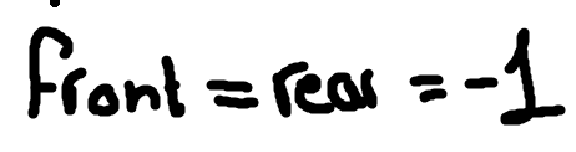 front = rear = -1